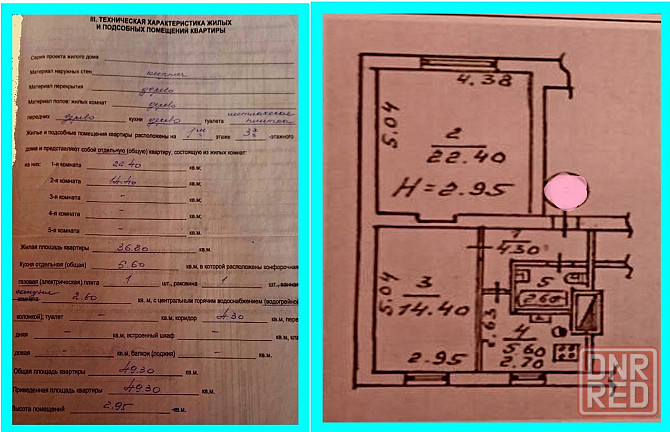 III. ТЕХНИЧЕСКАЯ ХАРАКТЕРИСТИКА ЖИЛЫХ
И ПОДСОБНЫХ ПОМЕЩЕНИЙ КВАРТИРЫ
Серия проекта жилого дома
Материал наружных стен кирпич
Материал перекрытия дерево
Материал полов: жилых комнат дерево
передних дерево кухни дерево туалета метлахская плитка
Жилые и подсобные помещения квартиры расположены на 1ом этаже 3х -этажного
дома и представляют собой отдельную (общую) квартиру, состоящую из жилых комнат:
из них: 1-я комната 22.40 кв.м,
2-я комната 14.40 кв.м,
3-я комната – кв.м,
4-я комната – кв.м,
5-я комната – кв.м,
Жилая площадь квартиры 36.80 кв.м.
Кухня отдельная (общая) 5.60 кв.м, в которой расположены конфорочная
газовая (электрическая) плита 1 шт., раковина 1 шт., ванная
комната 2.60 кв.м, с центральным горячим водоснабжением (водогрейной
колонкой); туалет – кв.м, коридор 4.30 кв.м, пере
дняя – кв.м, встроенный шкаф – кв.м, кла
довая – кв.м, балкон (лоджия) – кв.м.
Общая площадь квартиры 49.30 кв.м.
Приведенная площадь квартиры 49.30 кв.м.
Высота помещений 2.95 кв.м.
4.38
5.04
2
22.40
H=2.95
1
4.30
5
2.60
3
14.40
5.04
2.63
4
5.60
2.95
2.70
DNR
RED